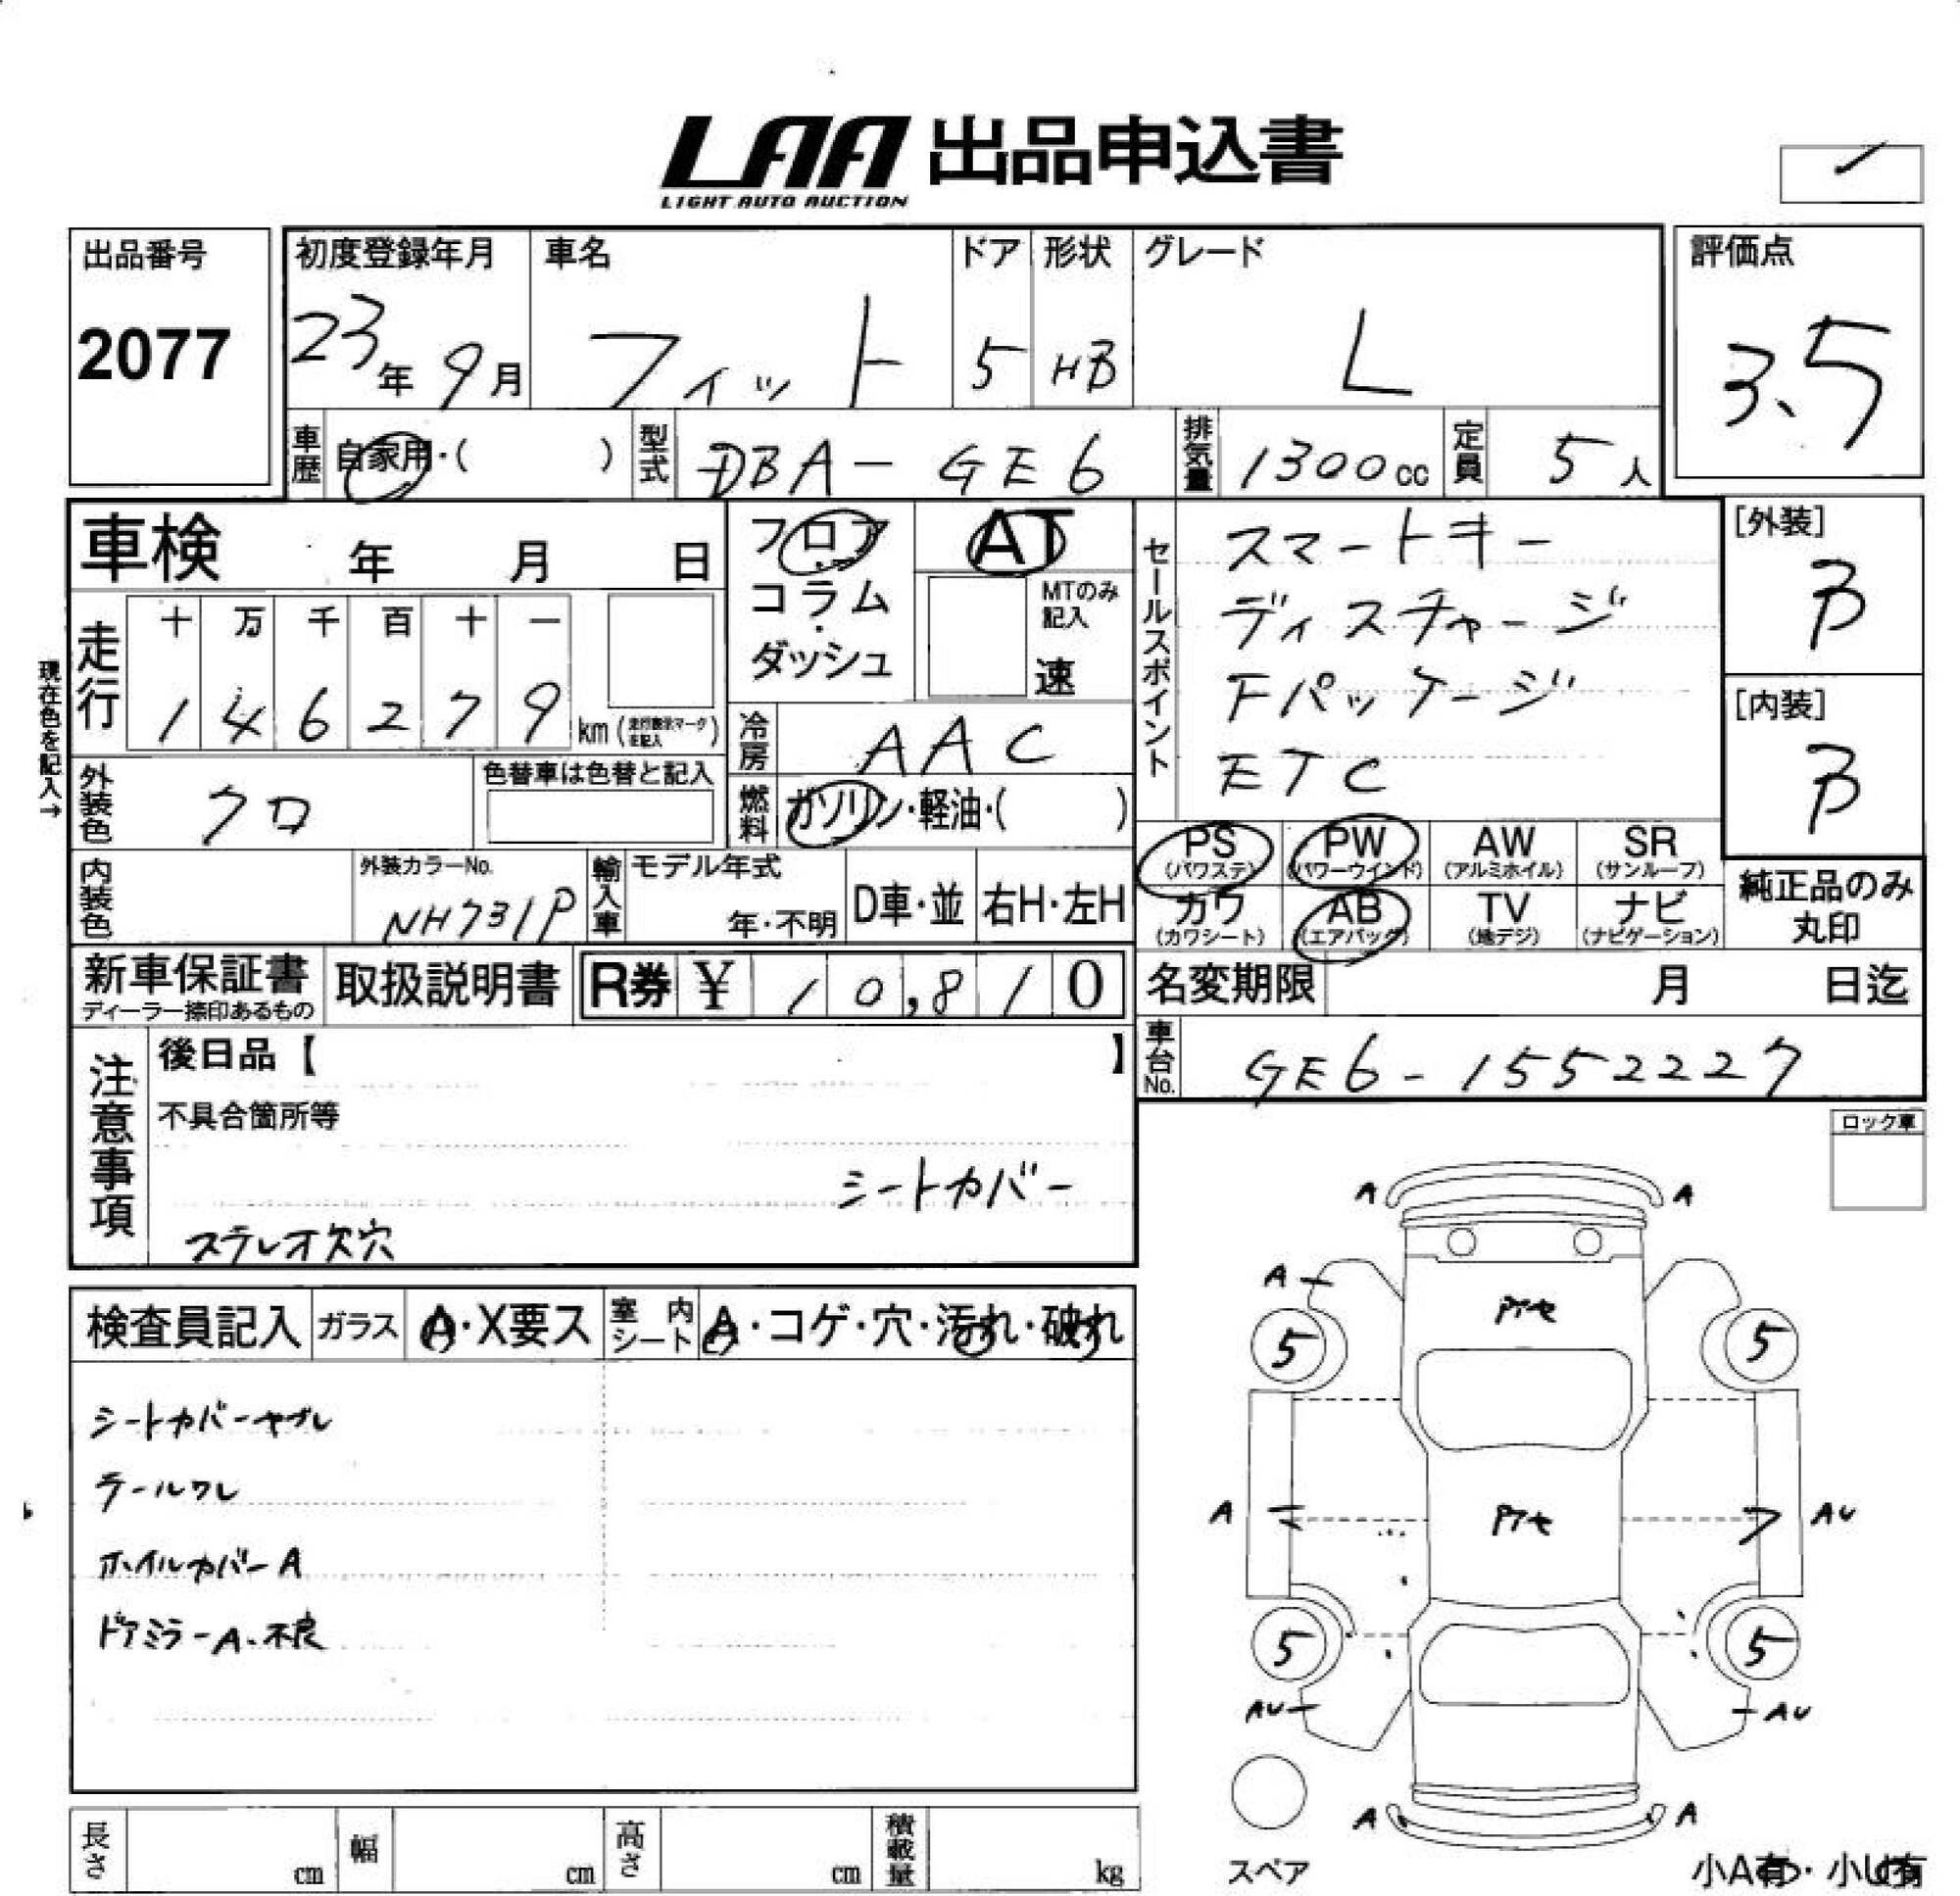 LAA 出品申込書
LIGHT AUTO AUCTION
出品番号
2077
初度登録年月
23年9月
車名
フィット
ドア
5
形状
HB
グレード
L
評価点
3.5
車歴
自家用・( )
型式
DBA-GE6
排気量
1300cc
定員
5人
車検 年 月 日
現在色を記入→
走行
十 万 千 百 十 一
1 4 6 2 7 9 km
フロア
コラム
・
ダッシュ
AT
MTのみ
記入
速
セールスポイント
スマートキー
ディスチャージ
Fパッケージ
ETC
[外装]
B
[内装]
B
冷房
AAC
燃料
ガソリン・軽油・( )
外装色
クロ
色替車は色替と記入
内装色
外装カラーNo.
NH731P
輸入車
モデル年式
年・不明
D車・並
右H・左H
PS
(パワステ)
PW
(パワーウインド)
AW
(アルミホイル)
SR
(サンルーフ)
カワ
(カワシート)
AB
(エアバック)
TV
(地デジ)
ナビ
(ナビゲーション)
純正品のみ
丸印
新車保証書
ディーラー捺印あるもの
取扱説明書
R券 ¥ 10,810
名変期限 月 日迄
車台No.
GE6-1552227
注意事項
後日品【 】
不具合箇所等
シートカバー
ステレオ欠穴
ロック車
検査員記入
ガラス
A・X要ス
室内シート
A・コゲ・穴・汚れ・破れ
シートカバーヤブレ
テールワレ
ホイルカバーA
ドアミラーA・不良
A A
A
5 5
A AU
5 5
AU AU
A A
スペア
小A有・小U有
長さ cm
幅 cm
高さ cm
積載量 kg